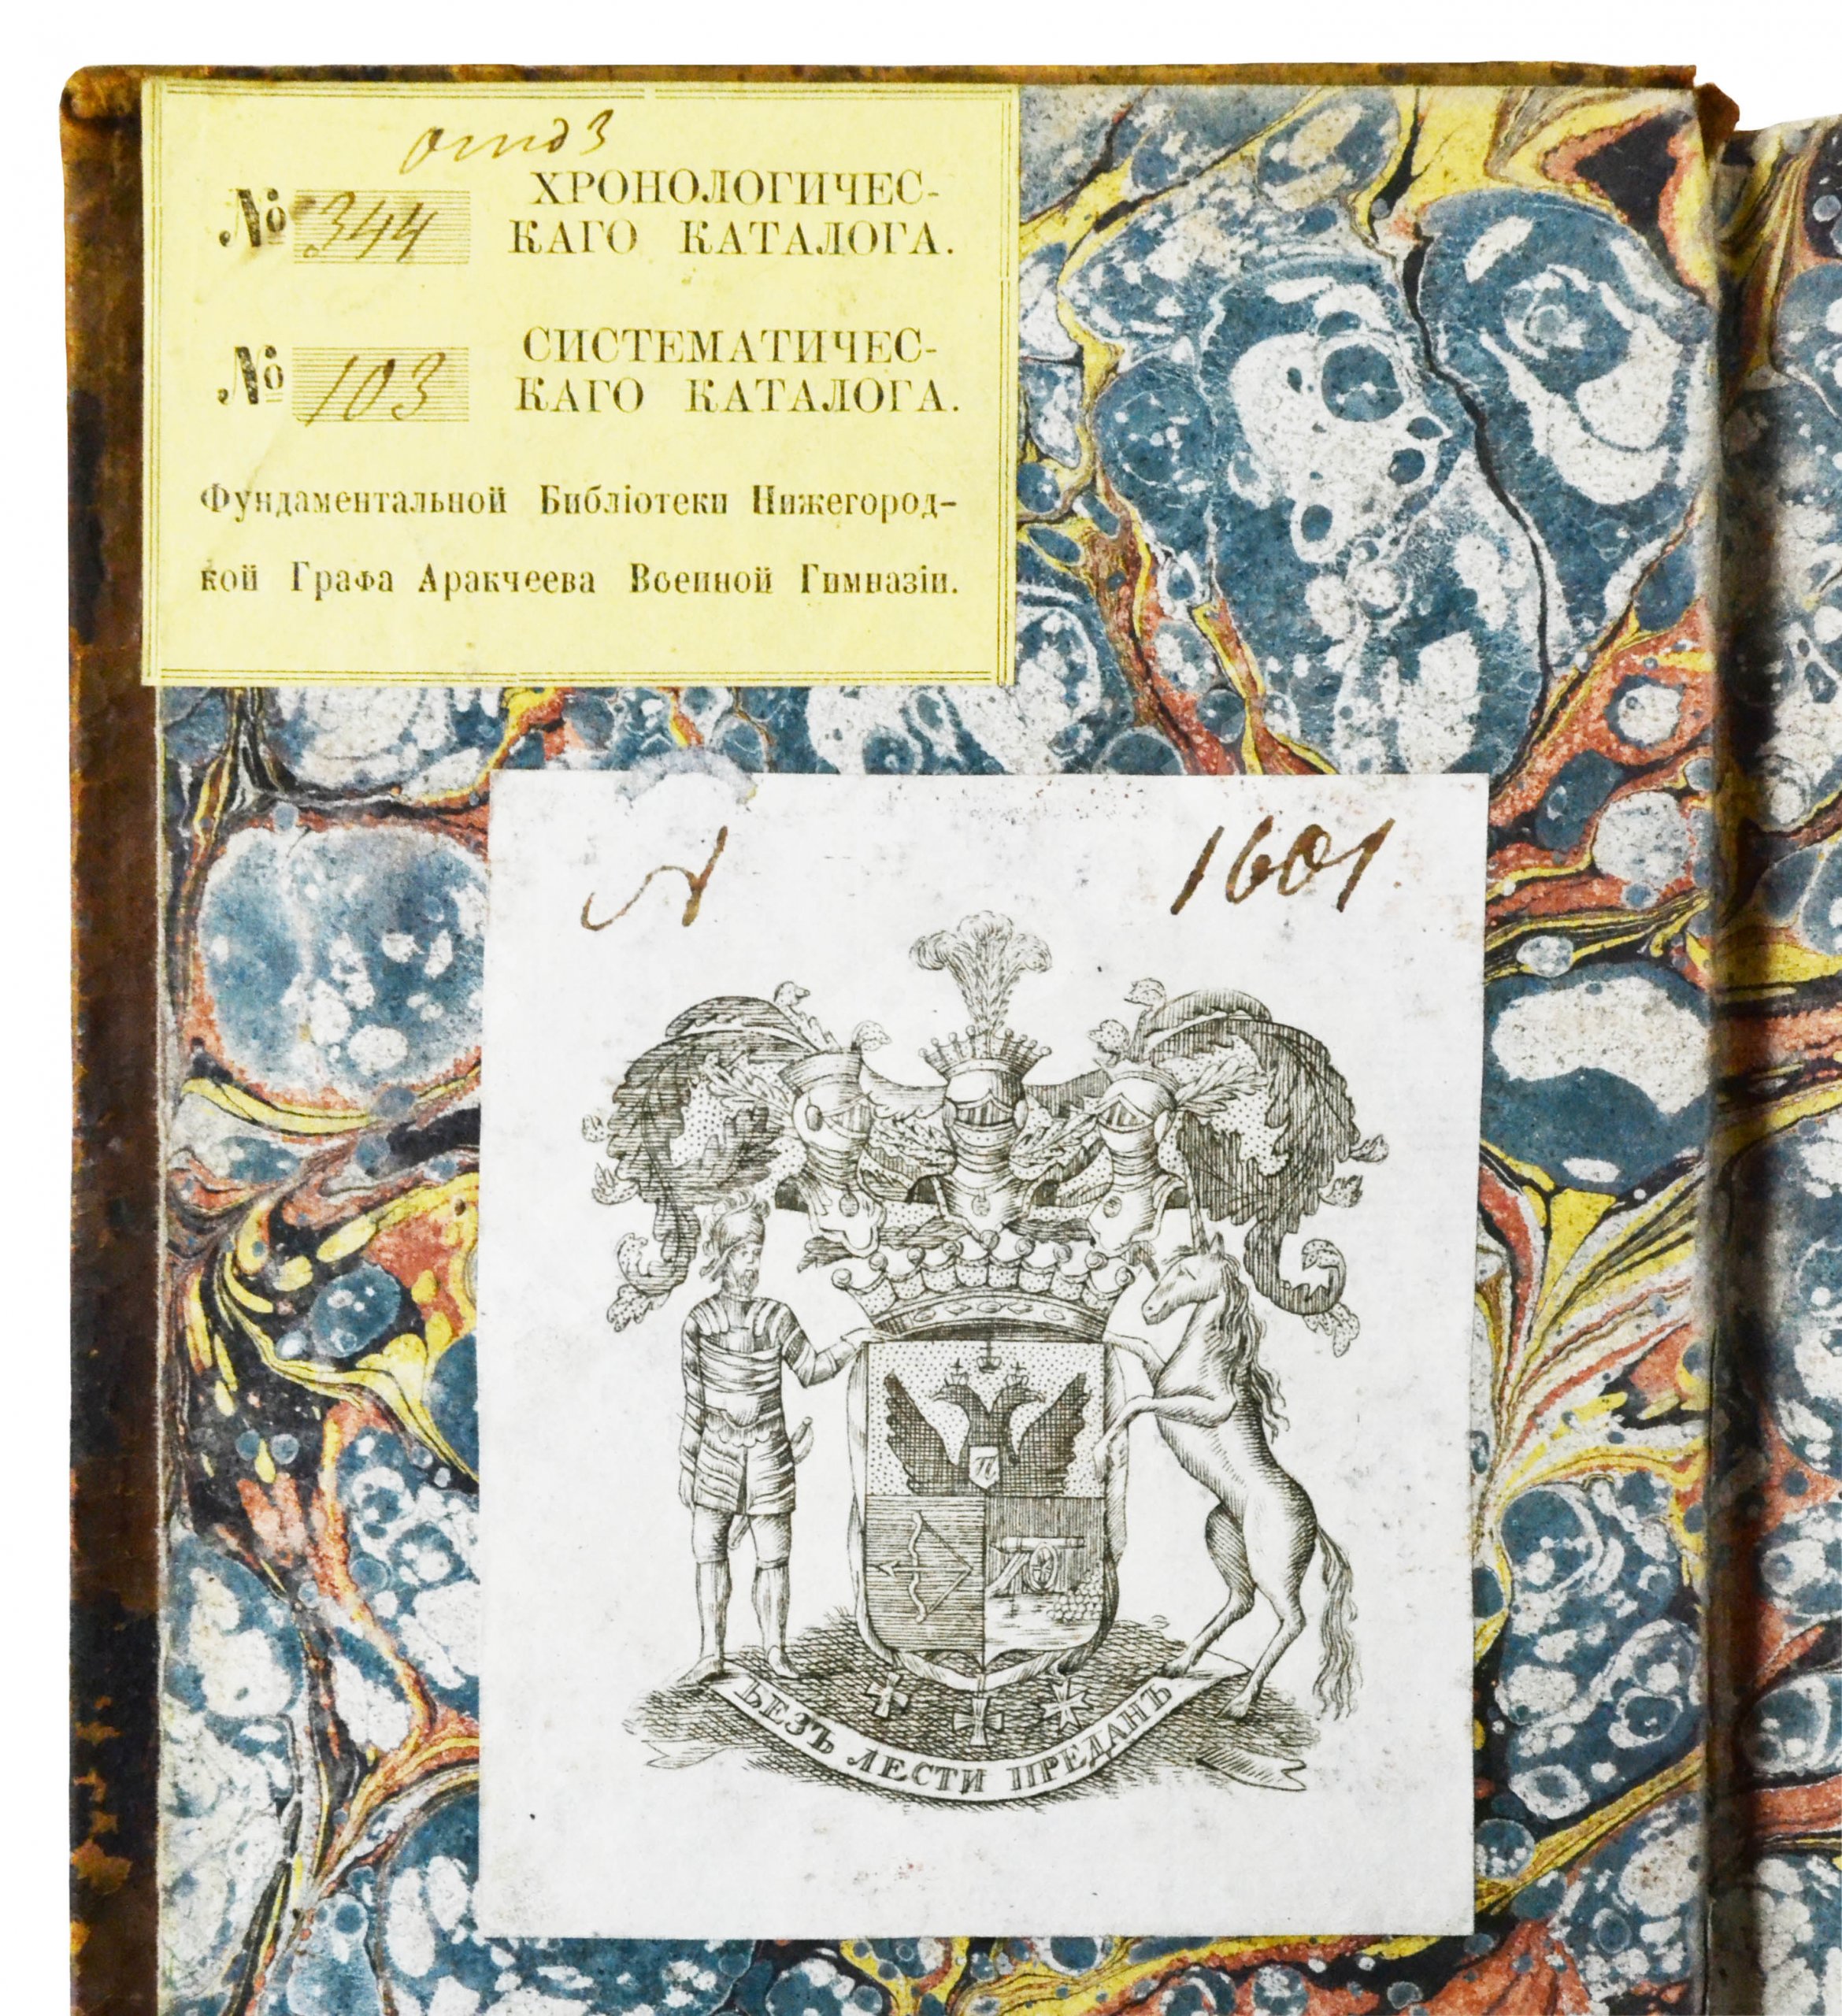 отд 3
№ 344 ХРОНОЛОГИЧЕС-
КАГО КАТАЛОГА.
№ 103 СИСТЕМАТИЧЕС-
КАГО КАТАЛОГА.
Фундаментальной Библіотеки Нижегород-
кой Графа Аракчеева Военной Гимназіи.
№ 1601
П
БЕЗЪ ЛЕСТИ ПРЕДАНЪ